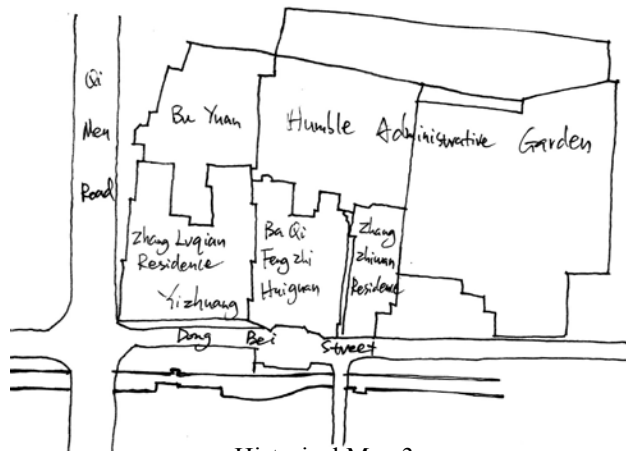 Qi
Men
Road
Bu Yuan
Humble Administrative Garden
Zhang Luqian
Residence
Yizhuang
Ba Qi
Feng Zhi
Huiguan
Zhang
Zhiwan
Residence
Dong Bei Street